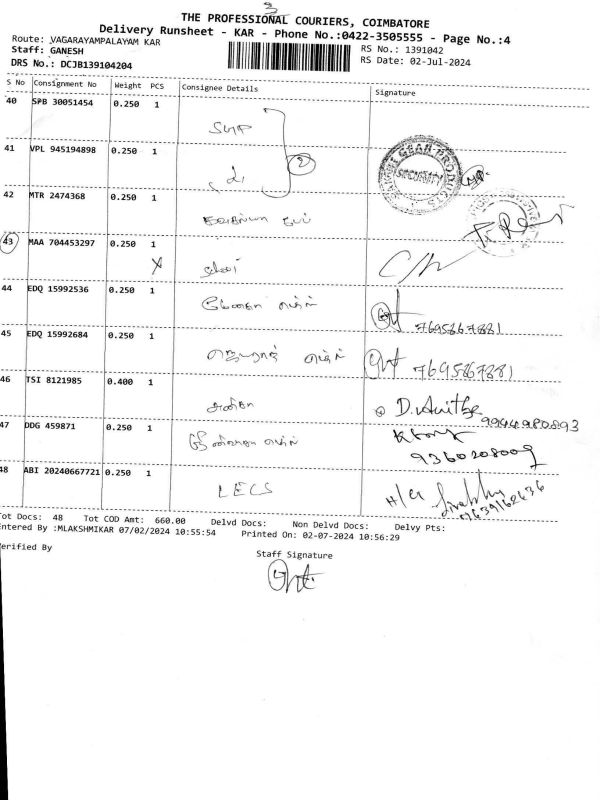 3
THE PROFESSIONAL COURIERS, COIMBATORE
Delivery Runsheet - KAR - Phone No.:0422-3505555 - Page No.:4
Route: VAGARAYAMPALAYAM KAR
RS No.: 1391042
Staff: GANESH
RS Date: 02-Jul-2024
DRS No.: DCJB139104204
S No Consignment No Weight PCS Consignee Details Signature
40 SPB 30051454 0.250 1
41 VPL 945194898 0.250 1
2
SECURITY
42 MTR 2474368 0.250 1
43 MAA 704453297 0.250 1
X
44 EDQ 15992536 0.250 1
7695867881
45 EDQ 15992684 0.250 1
7695867881
46 TSI 8121985 0.400 1
D. Anitha
9944980893
47 DDG 459871 0.250 1
9360208009
48 ABI 20240667721 0.250 1
LECS
7639162636
Tot Docs: 48 Tot COD Amt: 660.00 Delvd Docs: Non Delvd Docs: Delvy Pts:
Entered By :MLAKSHMIKAR 07/02/2024 10:55:54 Printed On: 02-07-2024 10:56:29
Verified By
Staff Signature